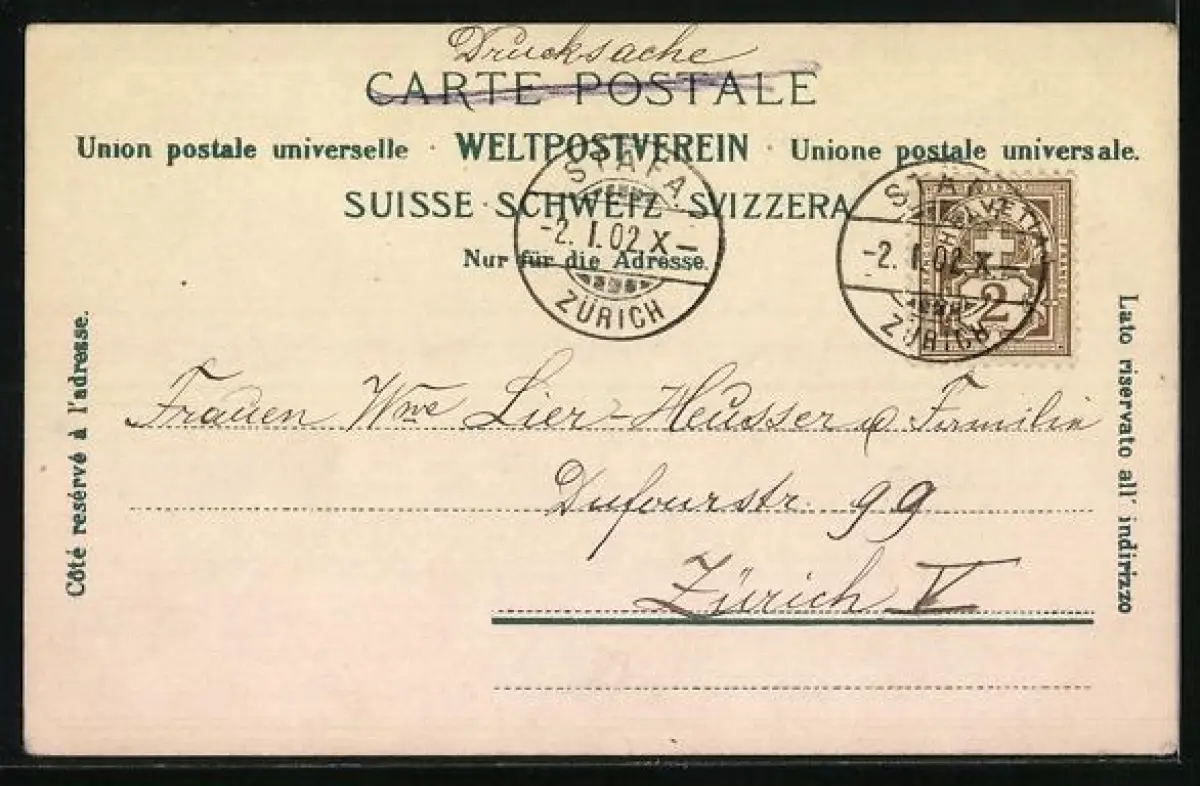 Drucksache
CARTE POSTALE
Union postale universelle · WELTPOSTVEREIN · Unione postale universale.
SUISSE · SCHWEIZ · SVIZZERA
Nur für die Adresse.
STÄFA
-2.I.02.X-
ZÜRICH
STÄFA
-2.I.02.X-
ZÜRICH
HELVETIA
2
Côté resérvé à l'adresse.
Lato riservato all' indirizzo
Frauen Wwe Lier-Heusser & Familie
Dufourstr. 99
Zürich V